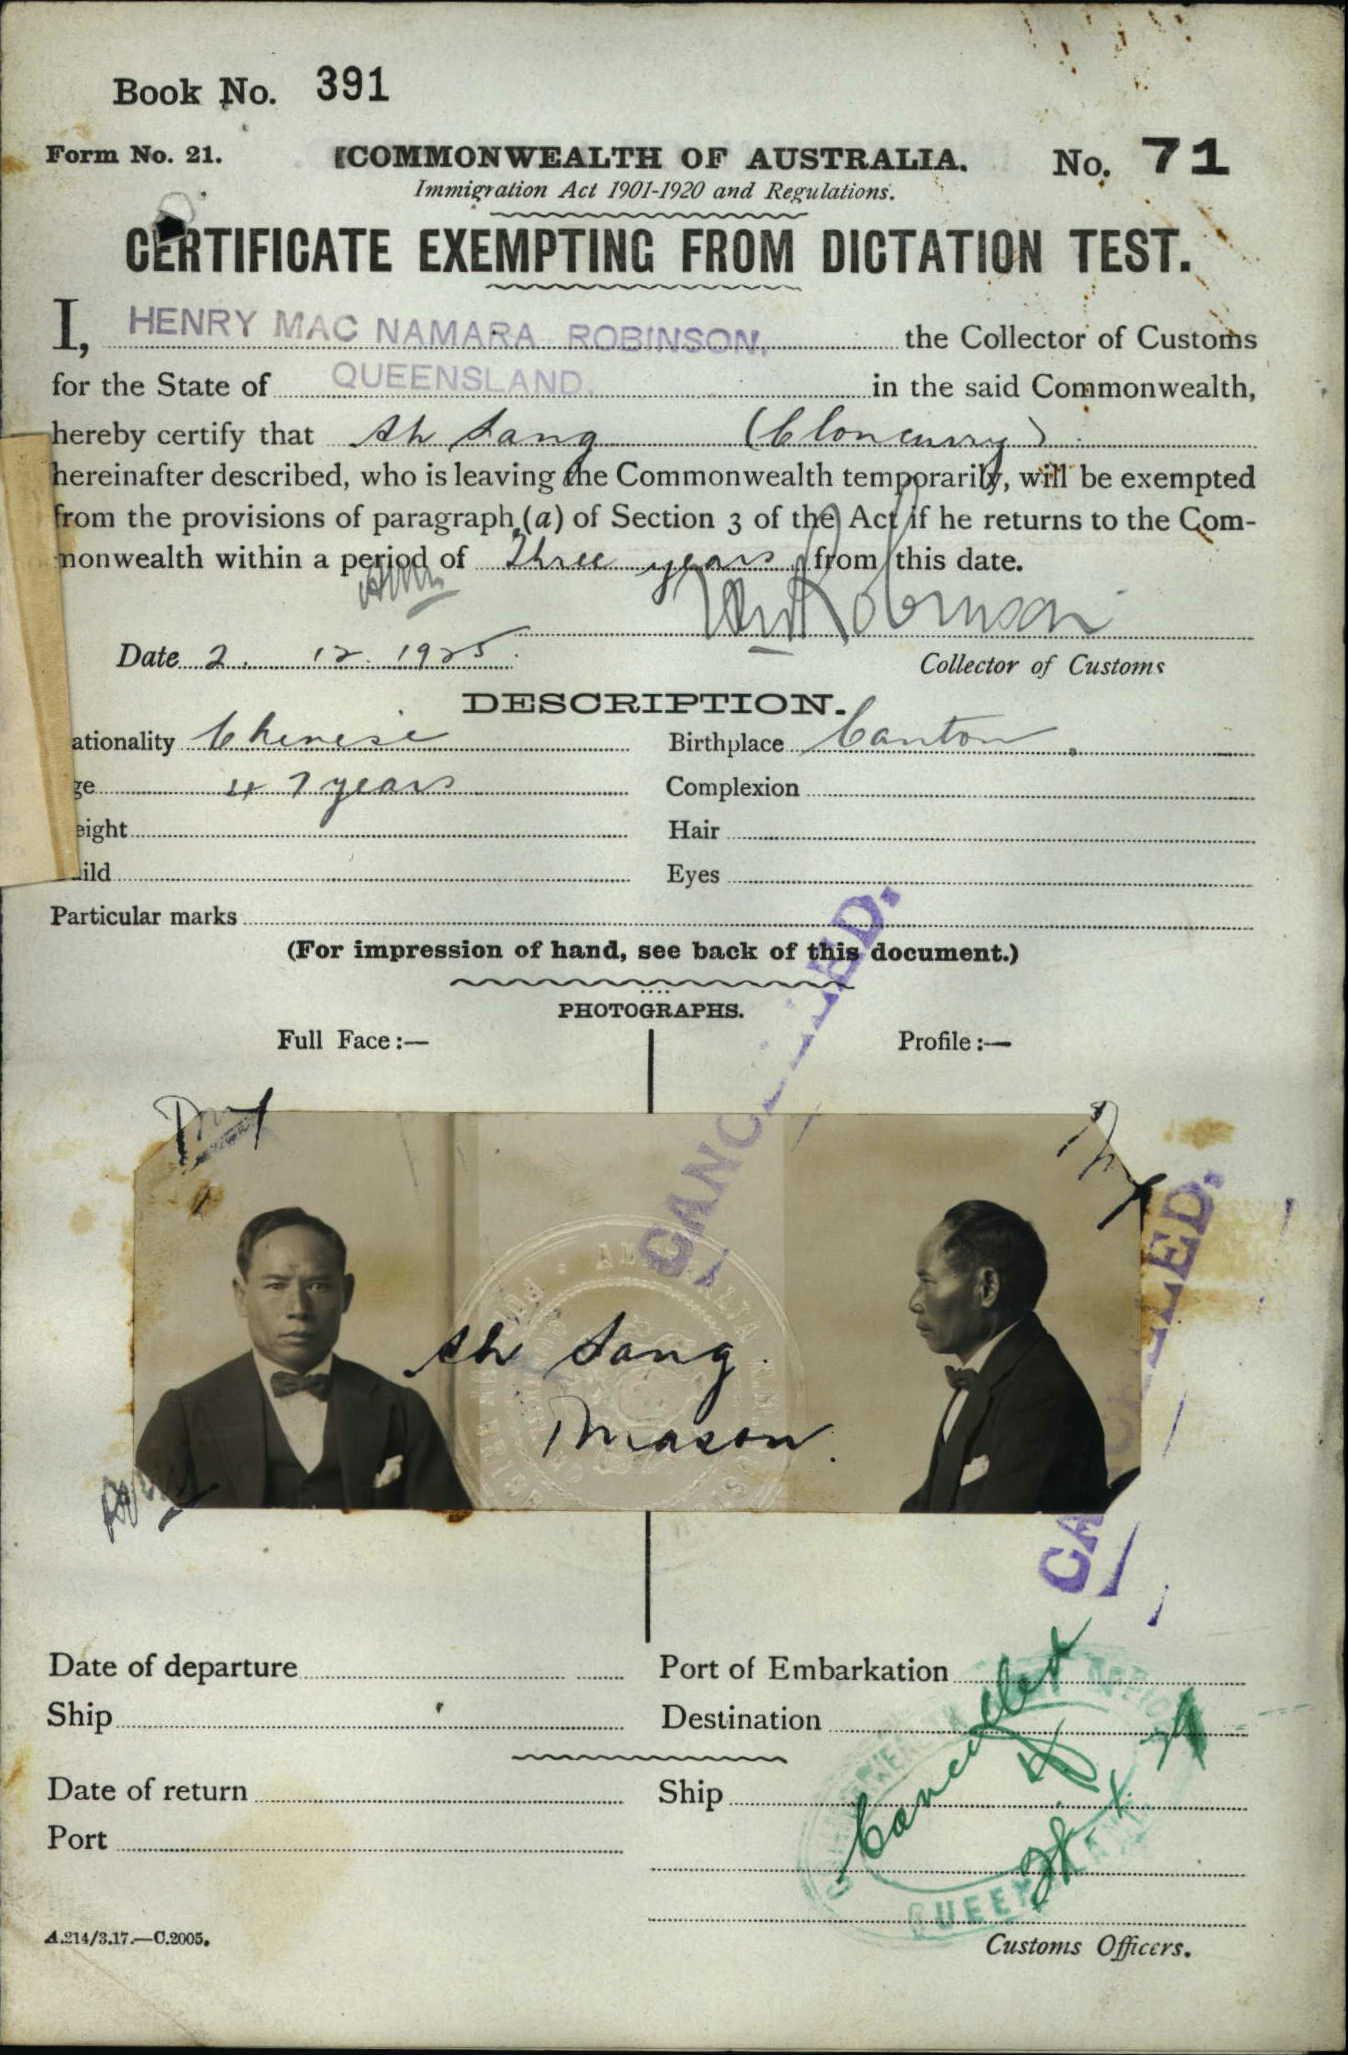 Book No. 391
Form No. 21.
COMMONWEALTH OF AUSTRALIA.
No. 71
Immigration Act 1901-1920 and Regulations.
CERTIFICATE EXEMPTING FROM DICTATION TEST.
I, HENRY MAC NAMARA ROBINSON, the Collector of Customs
for the State of QUEENSLAND. in the said Commonwealth,
hereby certify that Ah Sang (Cloncurry)
hereinafter described, who is leaving the Commonwealth temporarily, will be exempted
from the provisions of paragraph (a) of Section 3 of the Act if he returns to the Com-
monwealth within a period of Three years from this date.
Robinson
Date 2. 12. 1925.
Collector of Customs
DESCRIPTION.
ationality Chinese
Birthplace Canton.
ge 47 years
Complexion
eight
Hair
ild
Eyes
Particular marks
(For impression of hand, see back of this document.)
PHOTOGRAPHS.
Full Face:—
Profile:—
CANCELLED.
Ah Sang.
Mason.
CANCELLED.
Date of departure
Port of Embarkation
Ship
Destination
Cancelled
Date of return
Ship
Port
QUEENSLAND
A.214/3.17.—C.2005.
Customs Officers.